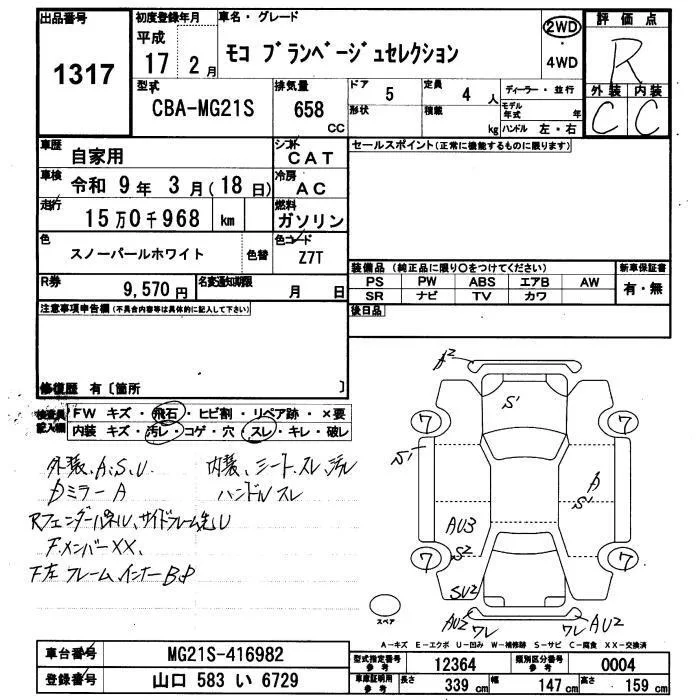 出品番号
1317
初度登録年月
平成
17 2 月
車名・グレード
モコ ブランベージュセレクション
2WD
・
4WD
評価点
R
外装 内装
C C
型式
CBA-MG21S
排気量
658
CC
ドア 5
形状
定員 4 人
積載 kg
ディーラー・並行
モデル年式 年
ハンドル 左・右
車歴
自家用
シフト
CAT
車検
令和 9 年 3 月(18 日)
冷房
AC
走行
15 万 0 千 968 km
燃料
ガソリン
色
スノーパールホワイト
色替
色コード
Z7T
R券
9,570 円
名変通知期限
月 日
セールスポイント(正常に機能するものに限ります)
装備品(純正品に限り○をつけてください)
PS PW ABS エアB AW
SR ナビ TV カワ
新車保証書
有・無
後日品
注意事項申告欄(不具合内容等は具体的に記入して下さい)
修復歴 有〔箇所 〕
検査員記入欄
FW キズ・飛石・ヒビ割・リペア跡・×要
内装 キズ・汚レ・コゲ・穴・スレ・キレ・破レ
外装、A、S、U
ミラーA
Rフェンダーパネル、サイドフレーム先U
F.メンバーXX、
下左フレーム、インナーB.P
内装、シート、スレ、汚レ
ハンドルスレ
A2
S1
7 7
S1
S1
AU3
S2
7 7
SU2
AU2 ワレ
ワレ AU2
スペア
A-キズ E-エクボ U-凹み W-補修跡 S-サビ C-腐食 XX-交換済
車台番号
MG21S-416982
登録番号
山口 583 い 6729
型式指定番号
参考
12364
類別区分番号
参考
0004
車庫証明用
参考
長さ 339 cm
幅 147 cm
高さ 159 cm